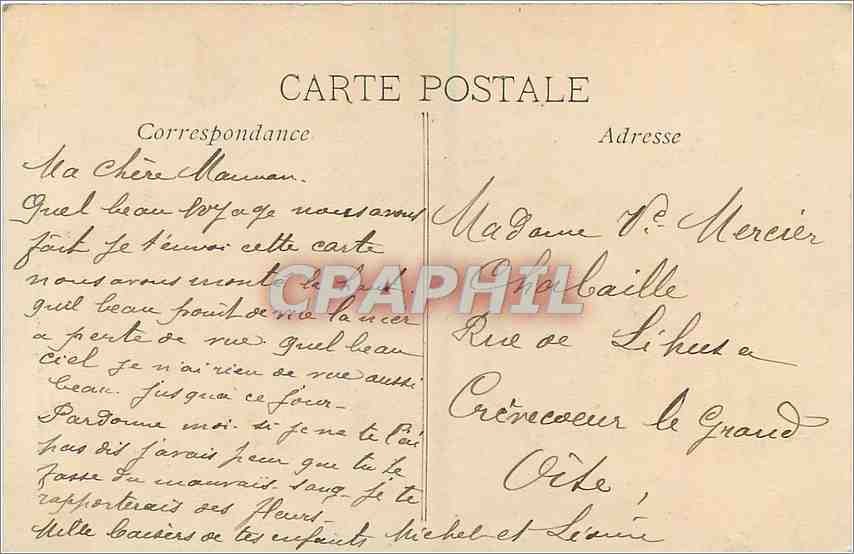 CARTE POSTALE
Correspondance
Ma chère Maman.
Quel beau voyage nous avons
fait je t'envoi cette carte
nous avons monté la haut.
quel beau point de vue la mer
a perte de vue. Quel beau
ciel je n'ai rien de vue aussi
beau. jusqu'a ce jour -
Pardonne moi. si je ne te l'ai
pas dis j'avais peur que tu te
fasse du mauvais - sang - je te
rapporterais des fleurs -
Mille baisers de tes enfants Michel et Léonie
CPAPHIL
Adresse
Madame Vve Mercier
Chabaille
Rue de Lihus a
Crèvecoeur le Grand
Oise,